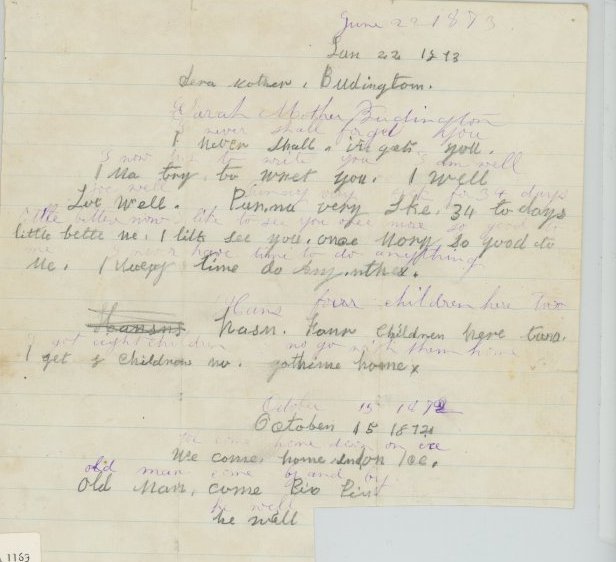 June 22 1873
Jun 22 1873
Sera Mother, Budington.
Sarah Mother Budington
I never shall forget you
I never shall, i gets you.
I now try to write you I am well
I Na try to wret you. I well
Joe well. 34 days
Joe well. Punna very Ske. 34 to days
little better now like to see you once more so good to
little bette ne. I lilk see you. once Mory so good to
me I never have time to do anything
Ne. I Noepy time do
Hans four children here two
hasn. Faur Children here two.
I got eight children no go with them home
I get 8 Children no. gotheme home x
October 15 1872
Octoben 15 1872
We come home sedg on ice
We come home on Ice.
old man come by and by
Old Man, come Bio Bin
be well
he well
1163